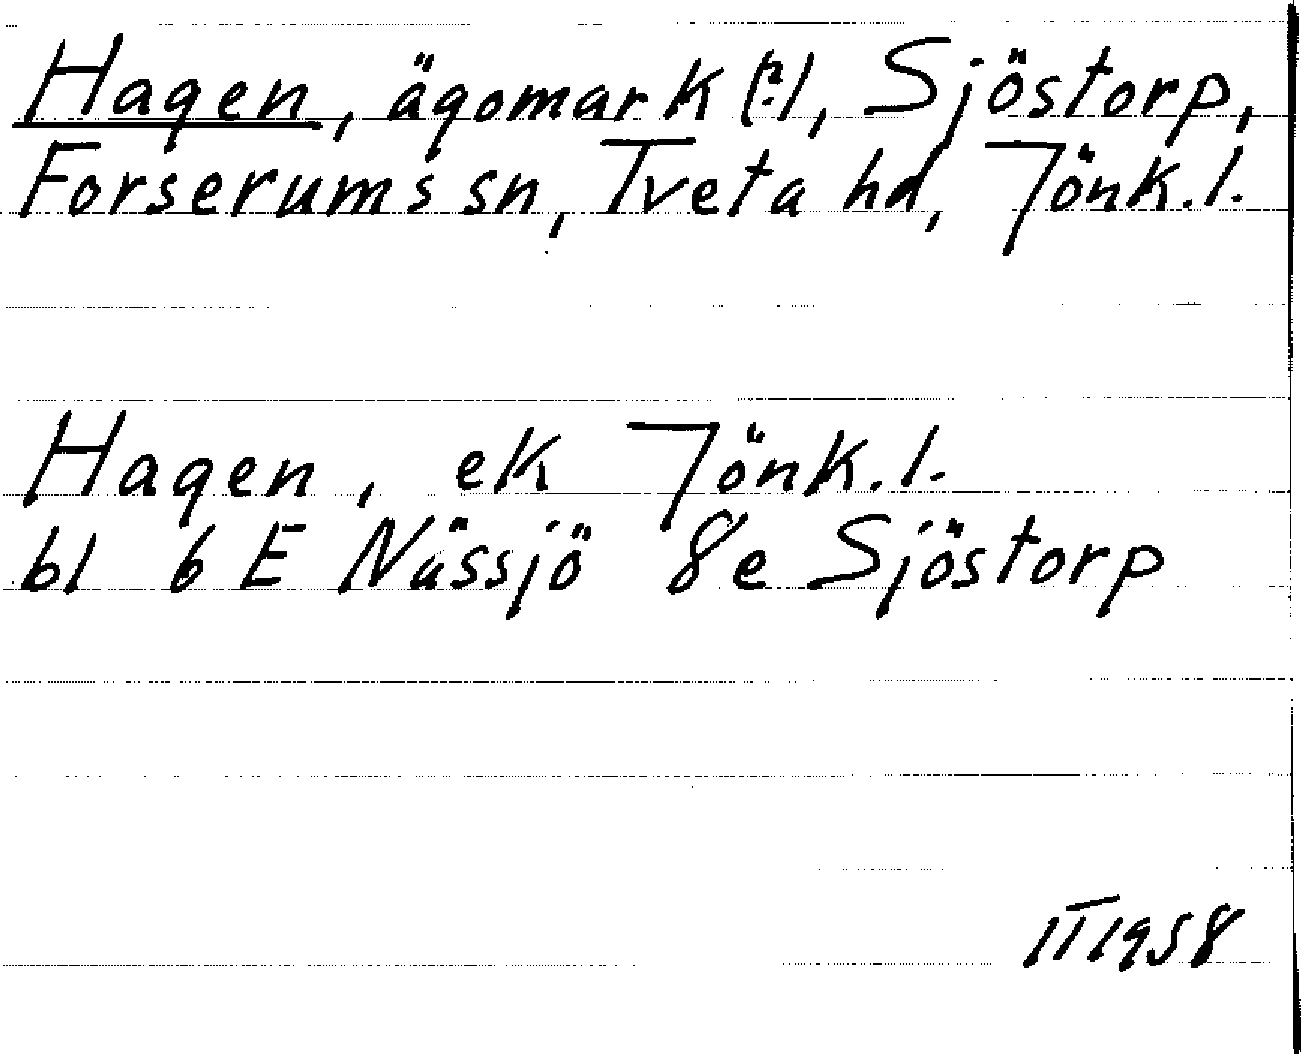 Hagen, ägomark (?), Sjöstorp,
Forserums sn, Tveta hd, Jönk.l.
Hagen, ek Jönk.l.
bl 6 E Nässjö 8e Sjöstorp
II 1958